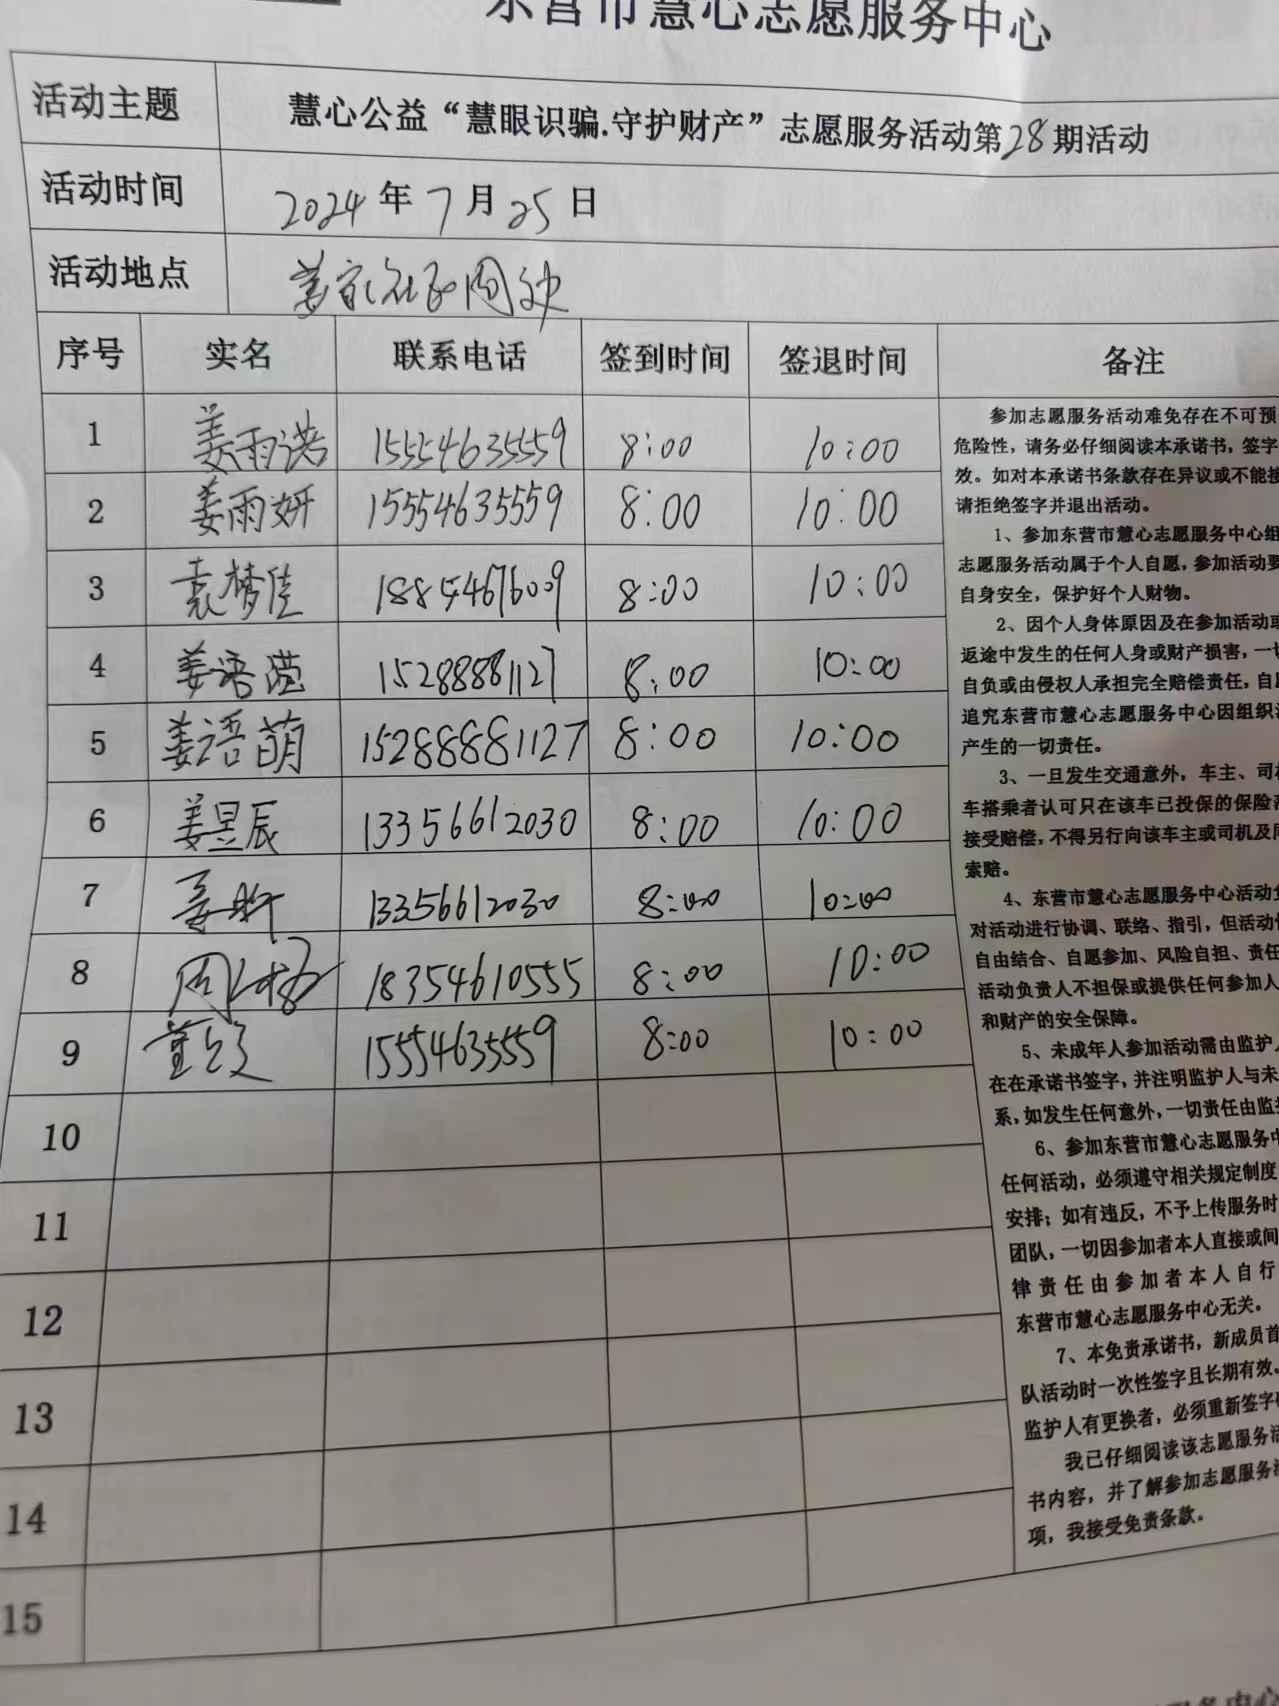 东营市慧心志愿服务中心
活动主题 慧心公益“慧眼识骗.守护财产”志愿服务活动第28期活动
活动时间 2024年7月25日
活动地点 姜家社区周边
序号 实名 联系电话 签到时间 签退时间 备注
1 姜雨诺 15554635559 8:00 10:00
2 姜雨妍 15554635559 8:00 10:00
3 袁梦佳 18854676009 8:00 10:00
4 姜语滢 15288881127 8:00 10:00
5 姜语萌 15288881127 8:00 10:00
6 姜昱辰 13356612030 8:00 10:00
7 姜昕 13356612030 8:00 10:00
8 周 18354610555 8:00 10:00
9 董 15554635559 8:00 10:00
10
11
12
13
14
15
参加志愿服务活动难免存在不可预
危险性，请务必仔细阅读本承诺书，签字
效。如对本承诺书条款存在异议或不能接
请拒绝签字并退出活动。
1、参加东营市慧心志愿服务中心组
志愿服务活动属于个人自愿，参加活动要
自身安全，保护好个人财物。
2、因个人身体原因及在参加活动或
返途中发生的任何人身或财产损害，一切
自负或由侵权人承担完全赔偿责任，自愿
追究东营市慧心志愿服务中心因组织活
产生的一切责任。
3、一旦发生交通意外，车主、司机
车搭乘者认可只在该车已投保的保险范
接受赔偿，不得另行向该车主或司机及同
索赔。
4、东营市慧心志愿服务中心活动负
对活动进行协调、联络、指引，但活动
自由结合、自愿参加、风险自担、责任
活动负责人不担保或提供任何参加人
和财产的安全保障。
5、未成年人参加活动需由监护人
在在承诺书签字，并注明监护人与未
系，如发生任何意外，一切责任由监护
6、参加东营市慧心志愿服务中
任何活动，必须遵守相关规定制度
安排；如有违反，不予上传服务时
团队，一切因参加者本人直接或间
律责任由参加者本人自行
东营市慧心志愿服务中心无关。
7、本免责承诺书，新成员首
队活动时一次性签字且长期有效。
监护人有更换者，必须重新签字
我已仔细阅读该志愿服务活
书内容，并了解参加志愿服务活
项，我接受免责条款。